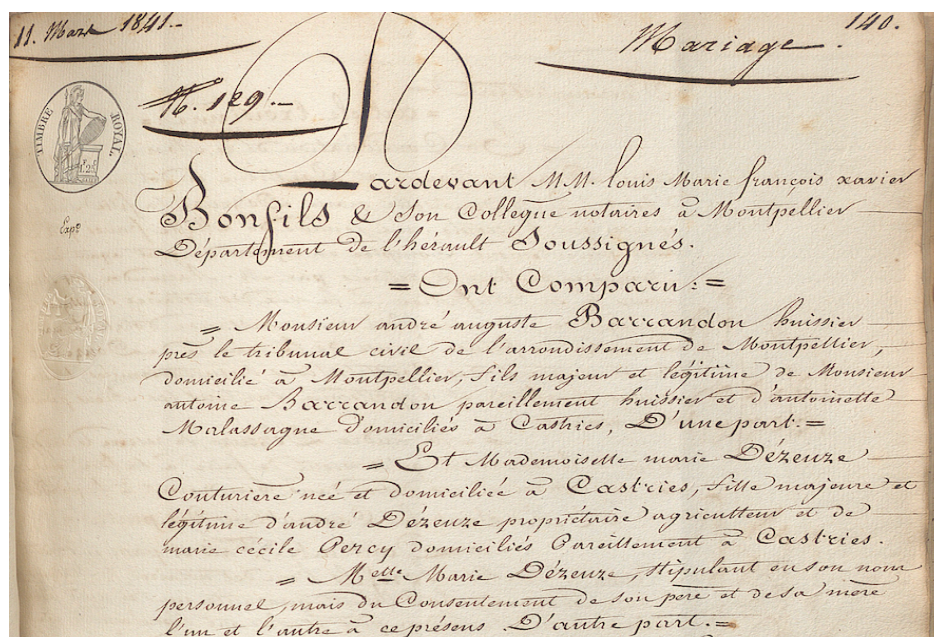 11. Mars 1841.-
140.
Mariage.
N. 129.-
TIMBRE ROYAL.
Pardevant M.M. louis Marie françois xavier
Bonfils & Son Collegue notaires à Montpellier
Département de l'hérault Soussignés.
= Ont Comparu: =
= Monsieur andré auguste Barrandon huissier
près le tribunal civil de l'arrondissement de Montpellier,
domicilié à Montpellier, fils majeur et légitime de Monsieur
antoine Barrandon pareillement huissier et d'antoinette
Malassagne domiciliés à Castries, D'une part. =
= Et Mademoiselle marie Dézeuze
Couturiere née et domiciliée à Castries, fille majeure et
légitime d'andré Dézeuze propriétaire agriculteur et de
marie cécile Percy domiciliés Pareillement à Castries.
= Melle Marie Dézeuze, stipulant en son nom
personnel, mais du Consentement de son pere et de sa mere
l'un et l'autre à ce présens D'autre part. =